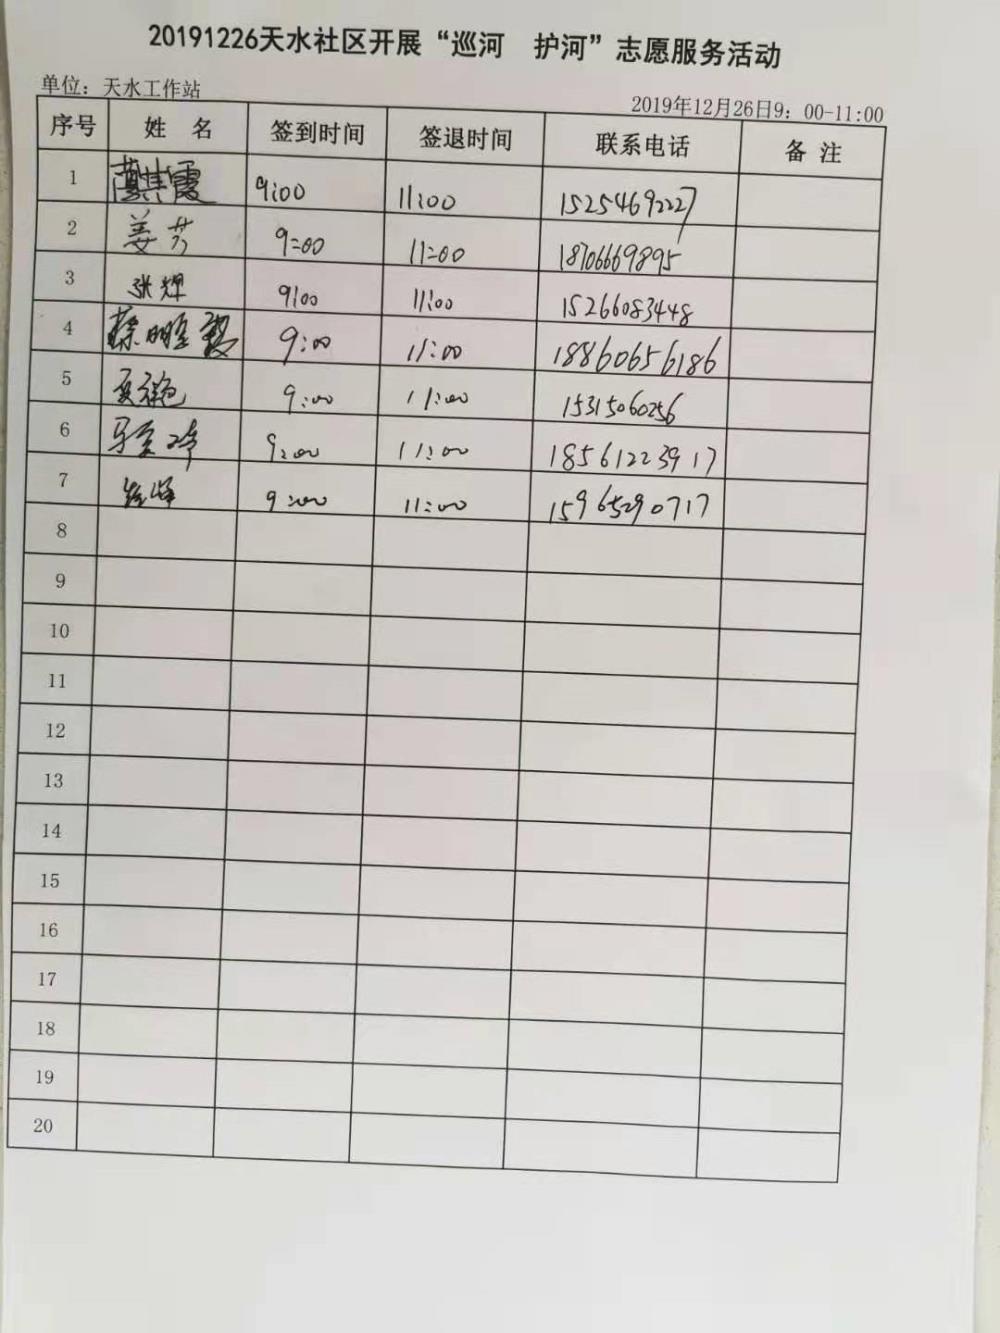 20191226天水社区开展“巡河 护河”志愿服务活动
单位：天水工作站
2019年12月26日9：00-11:00
序号 姓 名 签到时间 签退时间 联系电话 备 注
1 霞 9:00 11:00 15254692227
2 姜芳 9:00 11:00 18706669895
3 张辉 9:00 11:00 15266083448
4 9:00 11:00 18860656186
5 9:00 11:00 15315060256
6 9:00 11:00 18561223917
7 9:00 11:00 15965290717
8
9
10
11
12
13
14
15
16
17
18
19
20